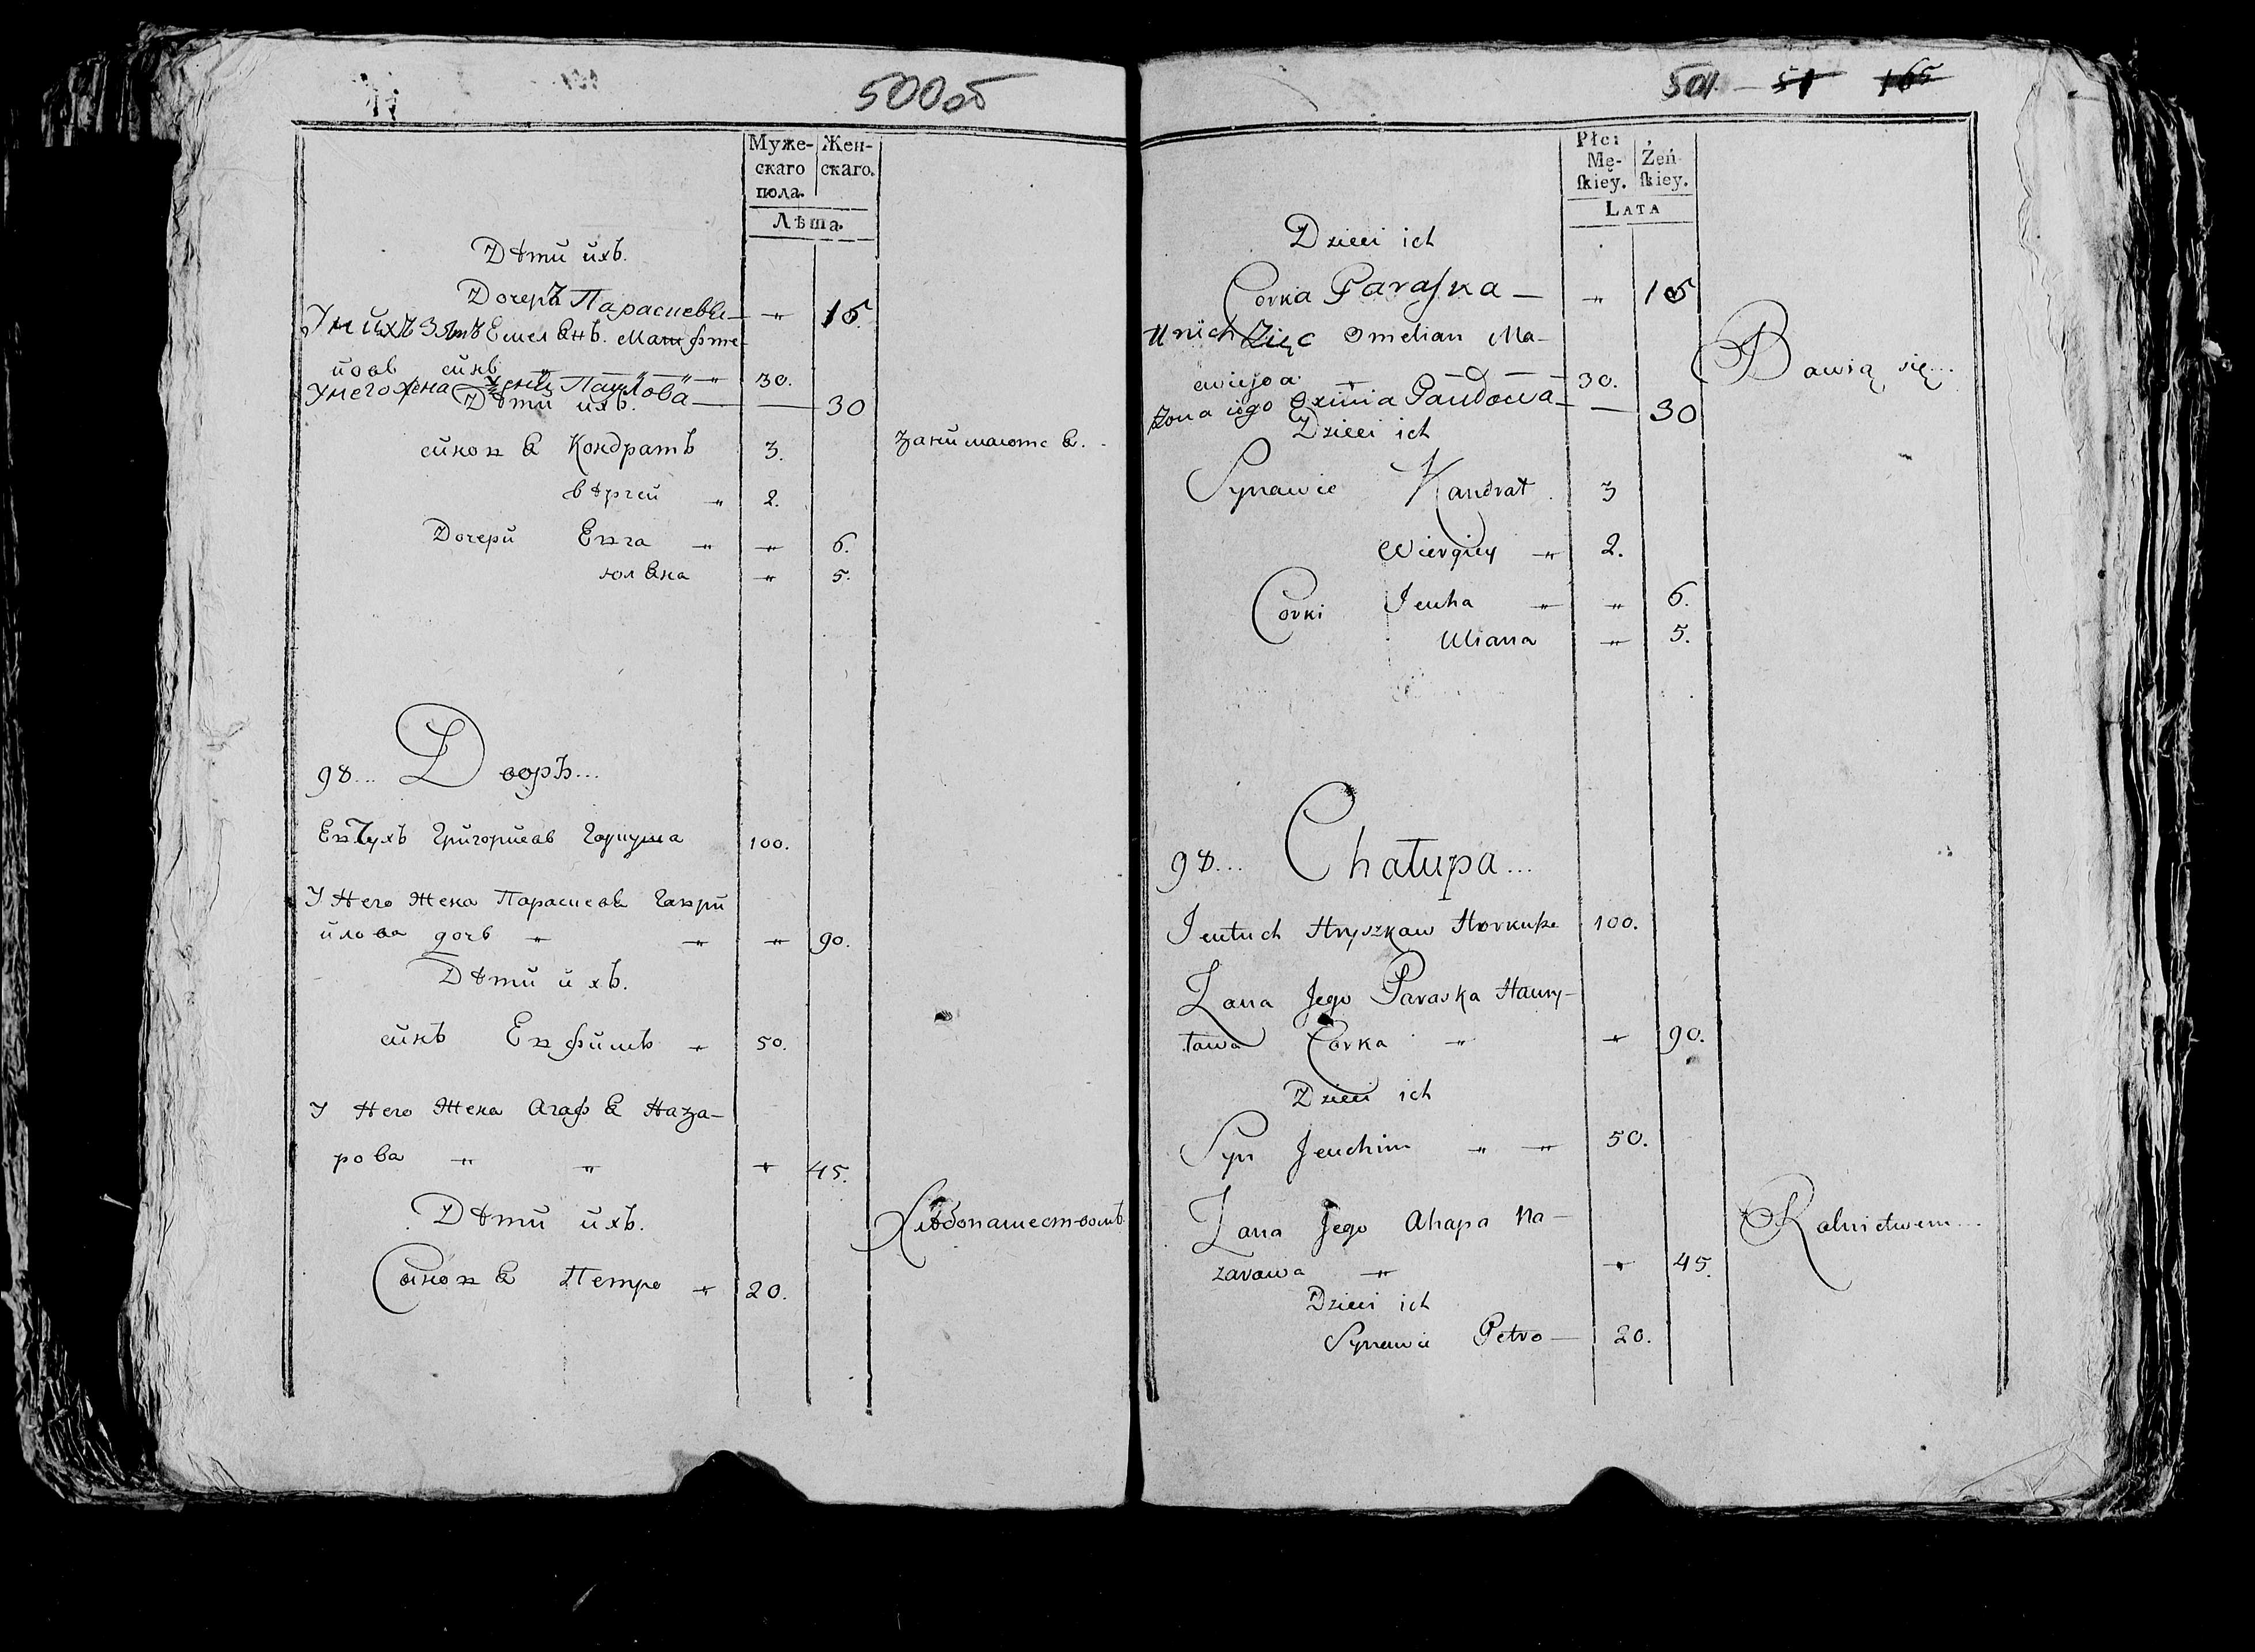 500об
Муже-
скаго
пола.
Жен-
скаго.
Лѣта.
Дѣти ихъ.
Дочерь Парасцевья — " 15.
У нихъ Зять Емельянъ Матфѣе-
йовъ синъ " " " 30.
У него жена Ѯеня Паулова — — 30
Дѣти ихъ.
синовья Кондратъ 3.
занимаютсья.
вѣргей " 2.
Дочери Евга " " 6.
юльяна " 5.
98... Дворъ...
Евтухъ Григорйевъ Горкуша 100.
У Него Жена Парасцевья Гаври
йлова дочь " " " 90.
Дѣти ихъ.
синъ Евфимъ " 50.
У Него Жена Агафья Наза-
рова " " " 45.
Дѣти ихъ.
Хлѣбопашествомъ
Синовья Петро " 20.
501 — 51 165
Płci
Mę-
ſkiey.
Żeń-
ſkiey.
LATA
Dzieci ich
Corka Paraſka — " 15
U nich Zięc Omelian Ma-
Bawią się...
30.
Zona iego Paułowa — — 30
Dzieci ich
Synawie Kandrat 3
Wiergiey " 2.
Corki Jeuha " " 6.
Uliana " 5.
98... Chałupa...
Jeutuch Hryszkaw Horkusza 100.
Zana Jego Paraska Haury-
ława Corka " " 90.
Dzieci ich
Syn Jeuchim " " 50.
Zana Jego Ahapa Na-
Rolnictwem...
zarawa " " 45.
Dzieci ich
Synawie Petro — 20.